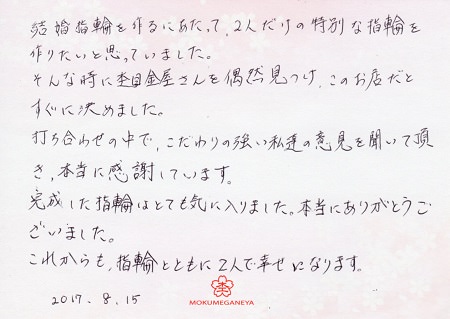 結婚指輪を作るにあたって、2人だけの特別な指輪を
作りたいと思っていました。
そんな時に杢目金屋さんを偶然見つけ、このお店だと
すぐに決めました。
打ち合わせの中で、こだわりの強い私達の意見を聞いて頂
き、本当に感謝しています。
完成した指輪はとても気に入りました。本当にありがとうご
ざいました。
これからも、指輪とともに2人で幸せになります。
2017.8.15
MOKUMEGANEYA